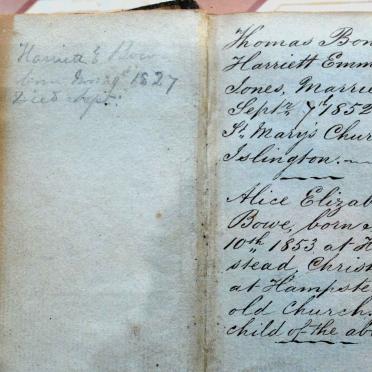 Harriett E Bow
born Novr 9th 1827
Died Sept.
Thomas Bon
Harriett Emm
Jones, Marrie
Septr 7th 1852
St. Mary's Chur
Islington.
Alice Elizab
Bowe, born
10th 1853 at H
stead, Christ
at Hampste
old Church.
child of the abo